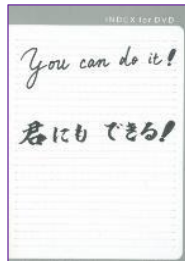 INDEX for DVD
You can do it!
君にも できる!